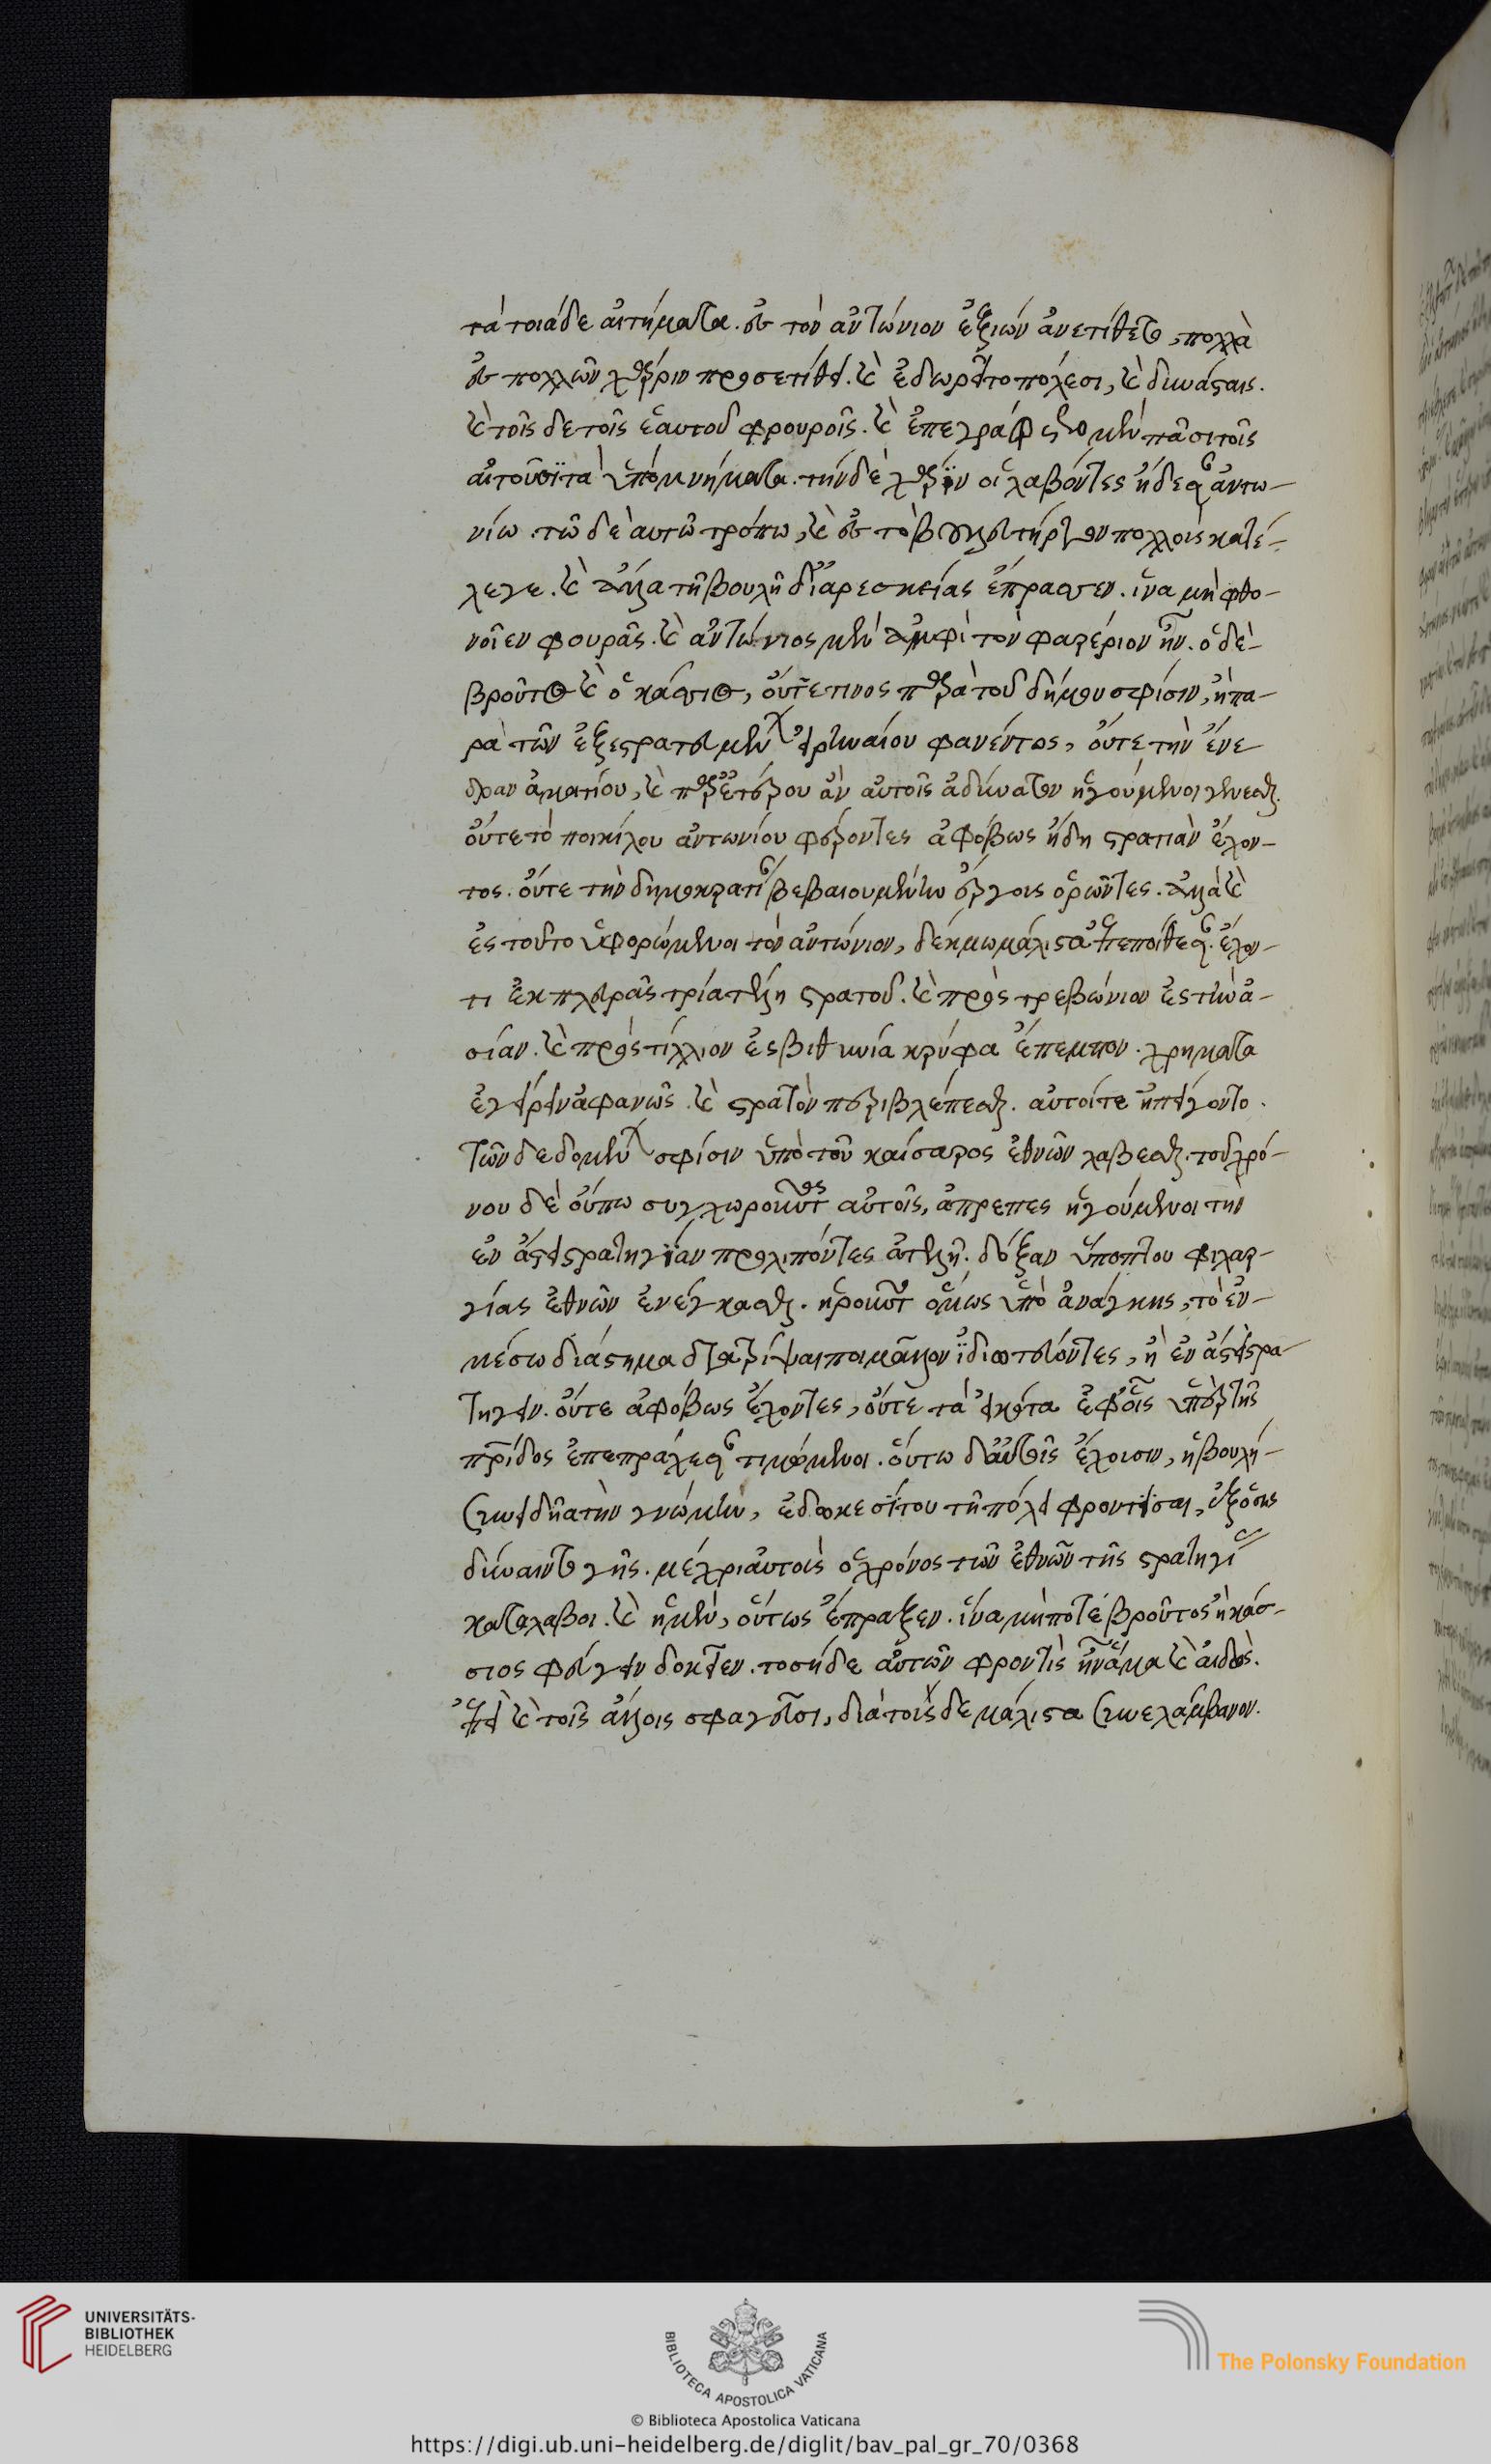 τὰ τοιάδε αἰτήματα. εἰς τὸν ἀντώνιον ἐξιὼν ἀνετίθετο, πολλὰ
εἰς πολλῶν χάριν προσετίθει. καὶ ἐδωρεῖτο πόλεσι, καὶ δυνάσταις.
καὶ τοῖσδε τοῖς ἑαυτοῦ φρουροῖς. καὶ ἐπεγράφετο μὲν πᾶσι τοῖς
αἰτοῦσι τὰ ὑπομνήματα. τὴν δὲ χάριν οἱ λαβόντες ᾔδεσαν ἀντω-
νίω. τῶ δὲ αὐτῶ τρόπω, καὶ εἰς τὸ βουλευτήριον πολλοὺς κατέ-
λεγε. καὶ ἄλλα τῆ βουλῆ δι' ἀρεσκείας ἔπρασσεν. ἵνα μὴ φθο-
νοῖεν φουρᾶς. καὶ ἀντώνιος μὲν ἀμφὶ τὸν φαπέριον ἦν. ὁ δὲ
βροῦτος καὶ ὁ κάσσιος, οὔτε τινος παρὰ τοῦ δήμου σφίσιν, ἢ πα-
ρὰ τῶν ἐξεστρατευμένων εἰρηναίου φανέντος, οὔτε τὴν ἐνέ
δραν ἀματίου, καὶ παρ' ἑτέρου ἂν αὐτοῖς ἀδύνατον ἡγούμενοι γενέσθαι.
οὔτε τὸ ποικίλου ἀντωνίου φέροντες ἀφόβως ἤδη στρατιὰν ἔχον-
τος. οὔτε τὴν δημοκρατίαν βεβαιουμένην ἔργοις ὁρῶντες. ἀλλὰ καὶ
ἐς τοῦτο ὑφορώμενοι τὸν ἀντώνιον, δέκμω μάλιστα ἐπεποίθεσαν. ἔχον-
τι ἐκ πλευρᾶς τρία τέλη στρατοῦ. καὶ πρὸς τρεβώνιον ἐς τὴν ἀ-
σίαν. καὶ πρὸς τίλλιον ἐς βιθυνία κρύφα ἔπεμπον. χρήματα
ἐγείρειν ἀφανῶς. καὶ στρατὸν περιβλέπεσθαι. αὐτοί τε ἠπείγοντο.
τῶν δεδομένων σφίσιν ὑπὸ τοῦ καίσαρος ἐθνῶν λαβέσθαι. τοῦ χρό-
νου δὲ οὔπω συγχωροῦντος αὐτοῖς, ἀπρεπὲς ἡγούμενοι τὴν
ἐν ἄστει στρατηγίαν προλιπόντες ἀτελῆ. δόξαν ὕποπτον φιλαρ-
γίας ἐθνῶν ἐνέγκασθαι. ἡροῦντο ὅμως ὑπὸ ἀνάγκης, τὸ ἐν
μέσω διάστημα διατρίψαι ποι μᾶλλον ἰδιωτεύοντες, ἢ ἐν ἄστει στρα-
τηγεῖν. οὔτε ἀφόβως ἔχοντες, οὔτε τὰ εἰκότα ἐφ' οἷς ὑπὲρ τῆς
πατρίδος ἐπεπράχεσαν τιμώμενοι. οὕτω δ' αὐτοῖς ἔχουσιν, ἡ βουλὴ
συνειδυῖα τὴν γνώμην, ἔδωκε σίτου τῆ πόλει φροντίσαι, ἐξ ὅσης
δύναιντο γῆς. μέχρι αὐτοὺς ὁ χρόνος τῶν ἐθνῶν τῆς στρατηγίας
καταλάβοι. καὶ ἡ μὲν, οὕτως ἔπραξεν. ἵνα μήποτε βροῦτος ἢ κάσ-
σιος φεύγειν δοκεῖεν. τοσήδε αὐτῶν φροντὶς ἦν ἅμα καὶ αἰδώς.
ἐπεὶ καὶ τοῖς ἄλλοις σφαγεῦσι, διὰ τούσδε μάλιστα συνελάμβανον.
UNIVERSITÄTS-
BIBLIOTHEK
HEIDELBERG
BIBLIOTECA APOSTOLICA VATICANA
The Polonsky Foundation
© Biblioteca Apostolica Vaticana
https://digi.ub.uni-heidelberg.de/diglit/bav_pal_gr_70/0368